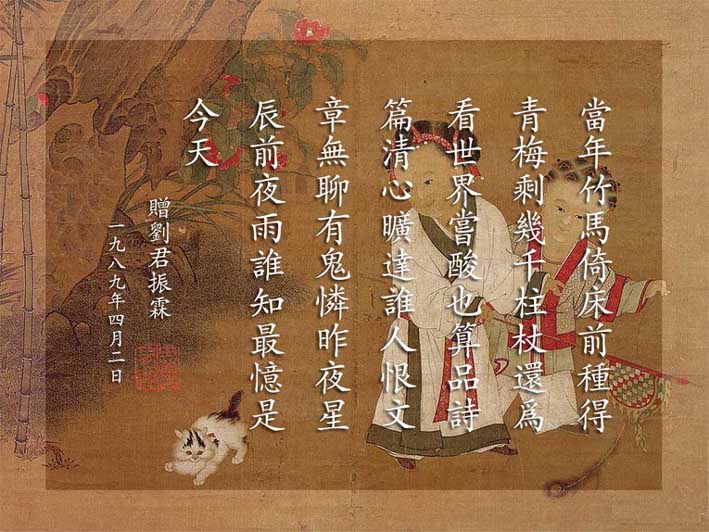 當年竹馬倚床前種得
青梅剩幾千柱杖還爲
看世界嘗酸也算品詩
篇清心曠達誰人恨文
章無聊有鬼憐昨夜星
辰前夜雨誰知最憶是
今天
贈劉君振霖
一九八九年四月二日